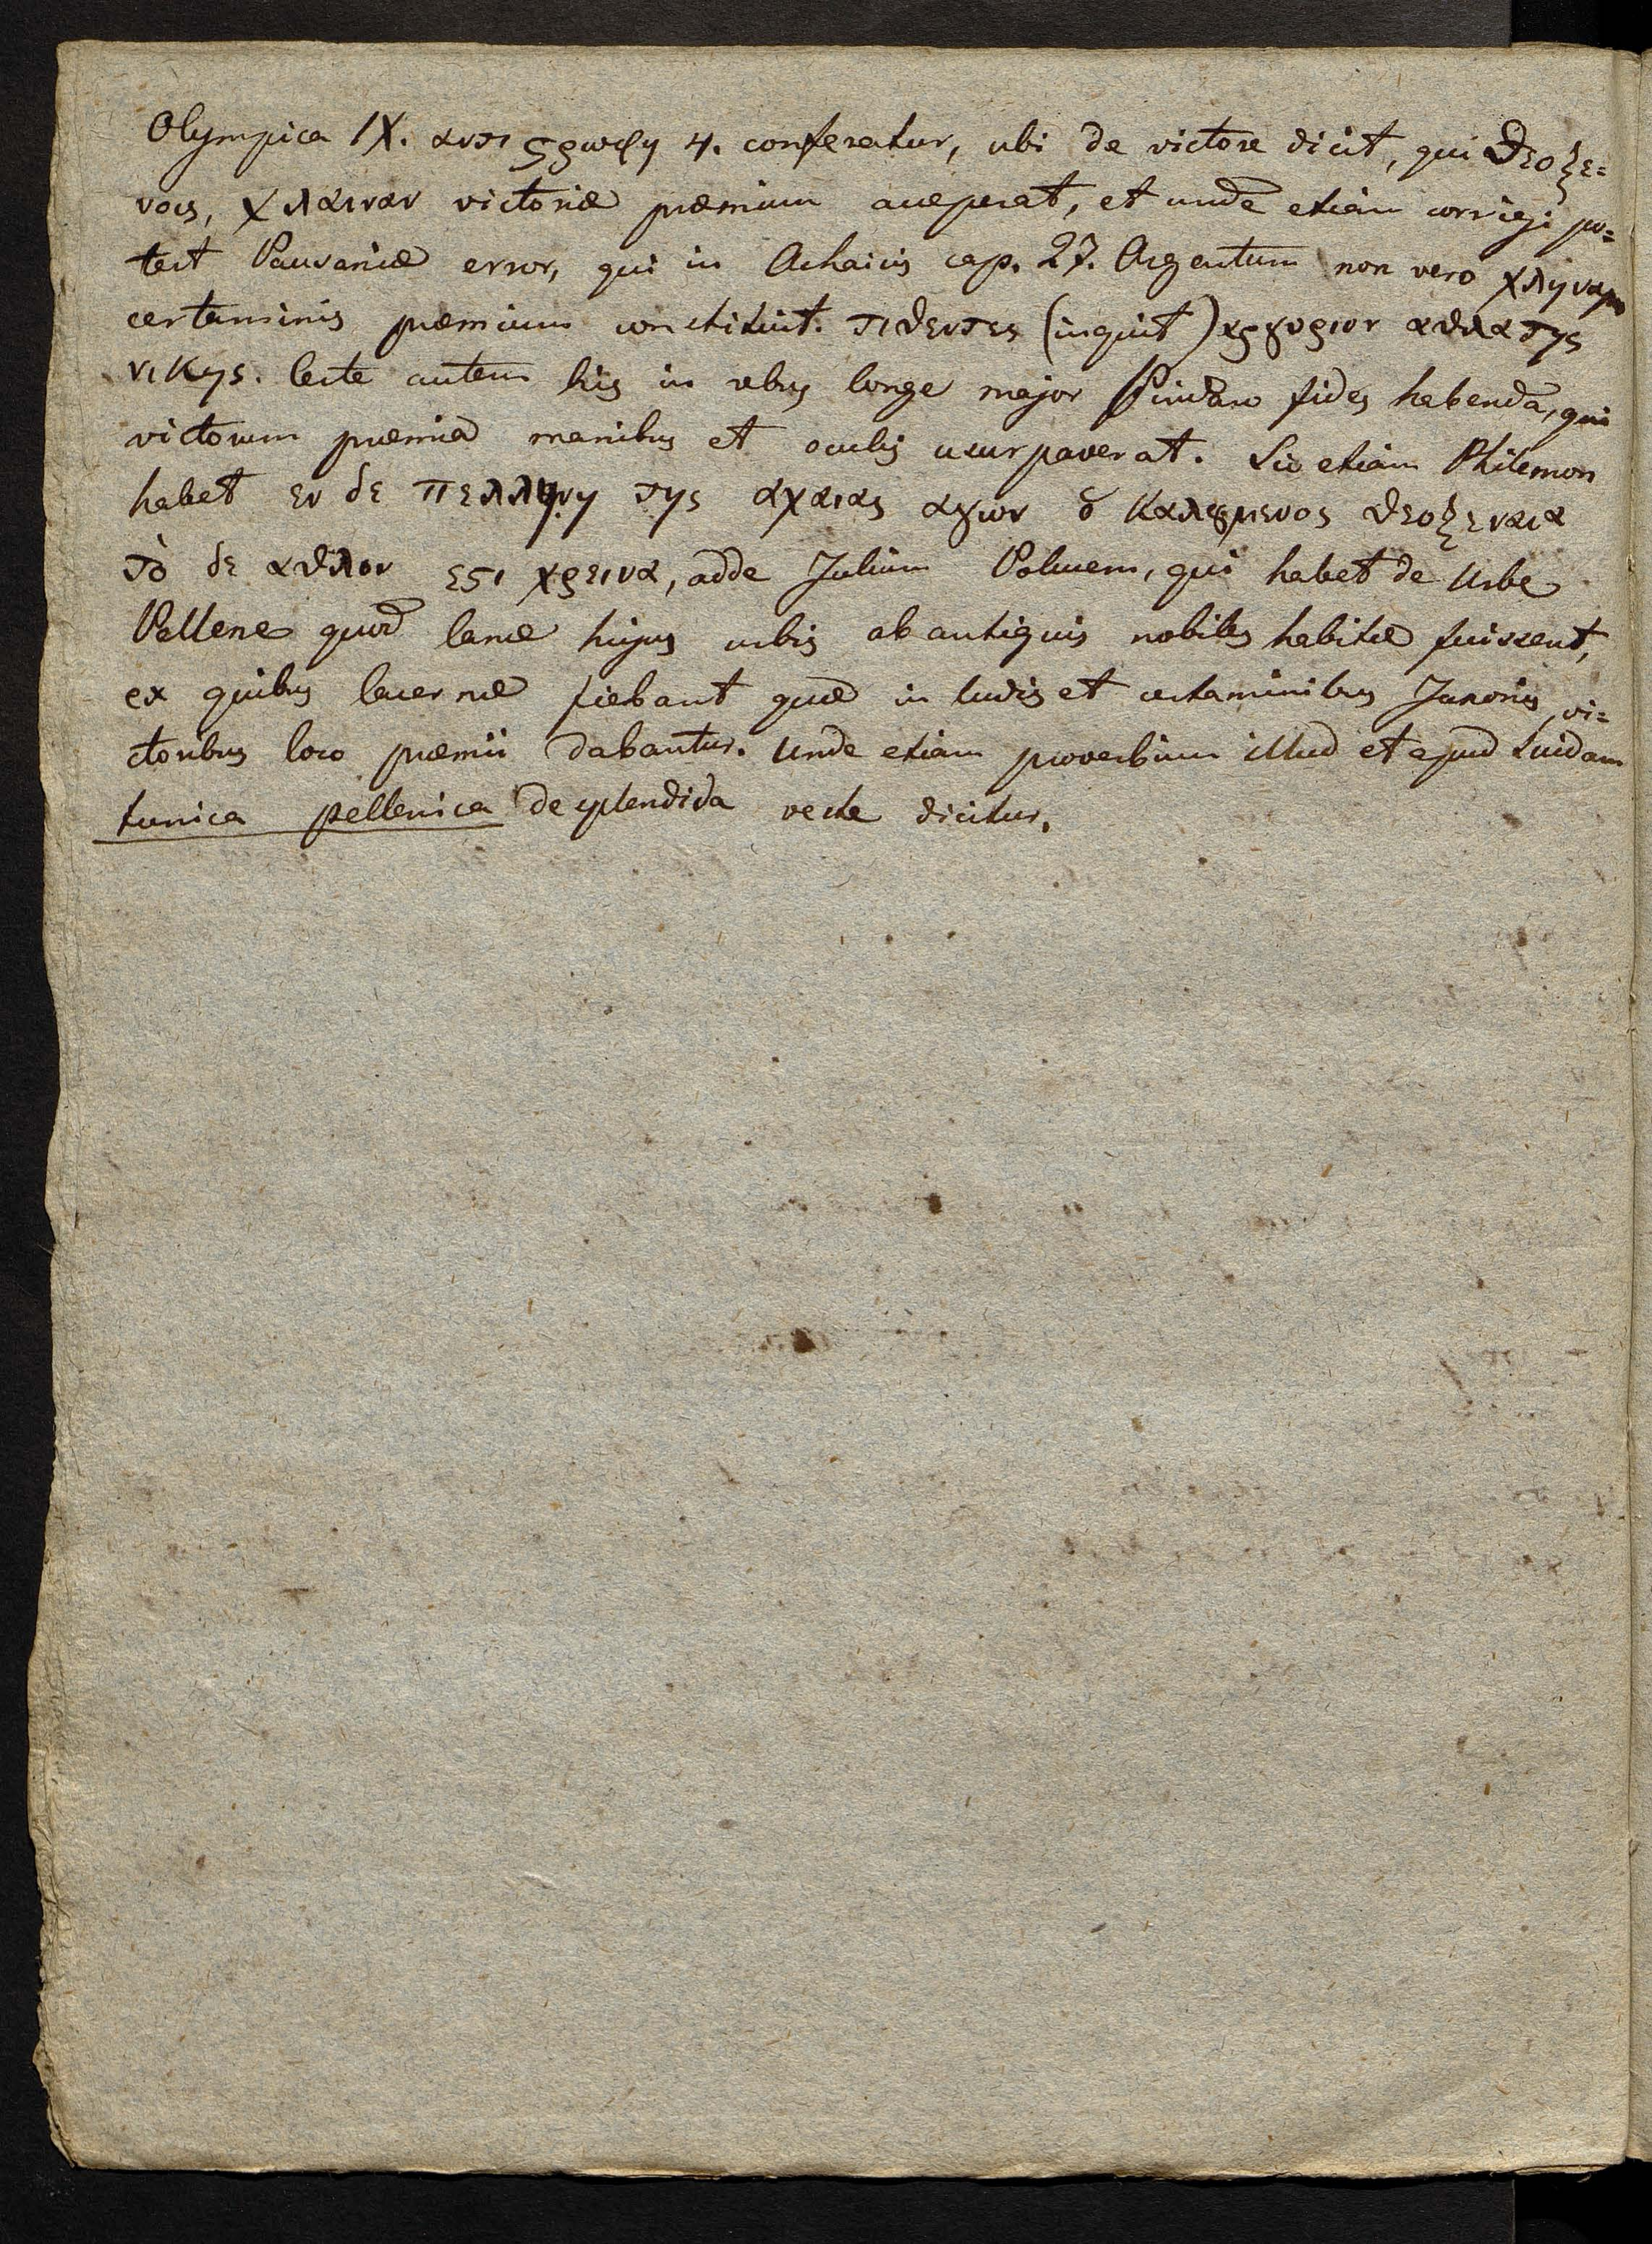 Olympica IX. αντιϛροφη 4. conferatur, ubi de victore dicit, qui θεοξε=
νοις, χλαιναν victoriæ præmium acceperat, et unde etiam corrigi po=
test Pausaniæ error, qui in Achaicis cap. 27. Argentum non vero χληναμ
certaminis præmium constituit. τιθεντες (inquit) αργυριον αθλα της
νικης. Certe autem his in rebus longe major Pindaro fides habenda, qui
victorum præmia manibus et oculis usurpaverat. Sic etiam Philemon
habet εν δε πελληνη της αχαιας αγων ὁ καλȣμενος θεοξεναια
τὸ δε αθλον εϛι χρεινα, adde Julium Polucem, qui habet de Urbe
Pellene quod lanæ hujus urbis ab antiquis nobiles habitæ fuissent,
ex quibus lacernæ fiebant quæ in ludis et certaminibus Junonis vi=
ctoribus loco præmii dabantur. Unde etiam proverbium illud et apud Suidam
tunica pellenica de splendida veste dicitur.